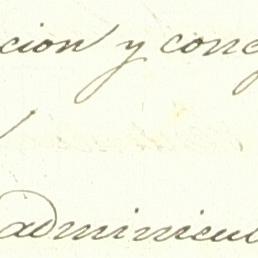 cion y cong
adminicul